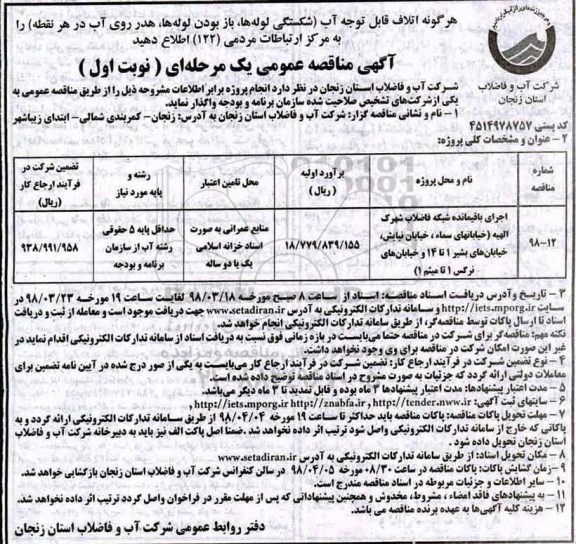 هرگونه اتلاف قابل توجه آب (شکستگی لوله‌ها، باز بودن لوله‌ها، هدر روی آب در هر نقطه) را
به مرکز ارتباطات مردمی (۱۲۲) اطلاع دهید
آگهی مناقصه عمومی یک مرحله‌ای ( نوبت اول )
شرکت آب و فاضلاب
استان زنجان
شرکت آب و فاضلاب استان زنجان در نظر دارد انجام پروژه برابر اطلاعات مشروحه ذیل را از طریق مناقصه عمومی به
یکی از شرکت‌های تشخیص صلاحیت شده سازمان برنامه و بودجه واگذار نماید.
۱ – نام و نشانی مناقصه گزار: شرکت آب و فاضلاب استان زنجان به آدرس: زنجان – کمربندی شمالی – ابتدای زیباشهر
کد پستی ۴۵۱۴۹۷۸۷۵۷
۲ – عنوان و مشخصات کلی پروژه:
شماره مناقصه
نام و محل پروژه
برآورد اولیه (ریال)
محل تامین اعتبار
رشته و پایه مورد نیاز
تضمین شرکت در فرآیند ارجاع کار (ریال)
۹۸-۱۲
اجرای باقیمانده شبکه فاضلاب شهرک
الهیه (خیابانهای سماء ، خیابان نیایش،
خیابان‌های بشیر ۱ تا ۱۴ و خیابان‌های
نرگس ۱ تا میثم ۱)
۱۸/۷۷۹/۸۳۹/۱۵۵
منابع عمرانی به صورت
اسناد خزانه اسلامی
یک یا دو ساله
حداقل پایه ۵ حقوقی
رشته آب از سازمان
برنامه و بودجه
۹۳۸/۹۹۱/۹۵۸
۳ – تاریخ و آدرس دریافت اسناد مناقصه: اسناد از ساعت ۸ صبح مورخه ۹۸/۰۳/۱۸ لغایت ساعت ۱۹ مورخه ۹۸/۰۳/۲۳ در
سایت http://iets.mporg.ir و سامانه تدارکات الکترونیکی به آدرس www.setadiran.ir جهت دریافت موجود است و معامله از ثبت و دریافت
اسناد تا ارسال پاکات توسط مناقصه‌گر، از طریق سامانه تدارکات الکترونیکی انجام خواهد شد.
نکته مهم: مناقصه‌گر برای شرکت در مناقصه حتما می‌بایست در بازه زمانی فوق نسبت به دریافت اسناد از سامانه تدارکات الکترونیکی اقدام نماید در
غیر این صورت امکان شرکت در مناقصه برای وی وجود نخواهد داشت.
۴ – نوع تضمین شرکت در فرآیند ارجاع کار: تضمین شرکت در فرآیند ارجاع کار می‌بایست به یکی از صور درج شده در آیین نامه تضمین برای
معاملات دولتی ارائه گردد که جزئیات به صورت مشروح در اسناد مناقصه توضیح داده شده است.
۵ – مدت اعتبار پیشنهادها: مدت اعتبار پیشنهادها ۳ ماه بوده و قابل تمدید تا ۳ ماه دیگر می‌باشد.
۶ – سایتهای ثبت آگهی: http://tender.nww.ir , http://iets.mporg.ir http://znabfa.ir ,
۷ – مهلت تحویل پاکات مناقصه: پاکات مناقصه باید حداکثر تا ساعت ۱۹ مورخه ۹۸/۰۴/۰۴ از طریق سامانه تدارکات الکترونیکی ارائه گردد و به
پاکاتی که خارج از سامانه تدارکات الکترونیکی واصل شود ترتیب اثر داده نخواهد شد .ضمنا اصل پاکت الف نیز باید به دبیرخانه شرکت آب و فاضلاب
استان زنجان تحویل داده شود .
۸ – مکان تحویل اسناد: از طریق سامانه تدارکات الکترونیکی به آدرس www.setadiran.ir
۹ – زمان گشایش پاکات: پاکات مناقصه در ساعت ۰۸/۳۰ مورخه ۹۸/۰۴/۰۵ در سالن کنفرانس شرکت آب و فاضلاب استان زنجان بازگشایی خواهد شد.
۱۰ – سایر اطلاعات و جزئیات مربوطه در اسناد مناقصه مندرج است.
۱۱ – به پیشنهادهای فاقد امضاء ، مشروط، مخدوش و همچنین پیشنهاداتی که پس از مهلت مقرر در فراخوان واصل گردد ترتیب اثر داده نخواهد شد.
۱۲ – هزینه کلیه آگهی‌ها به عهده برنده مناقصه می باشد.
دفتر روابط عمومی شرکت آب و فاضلاب استان زنجان